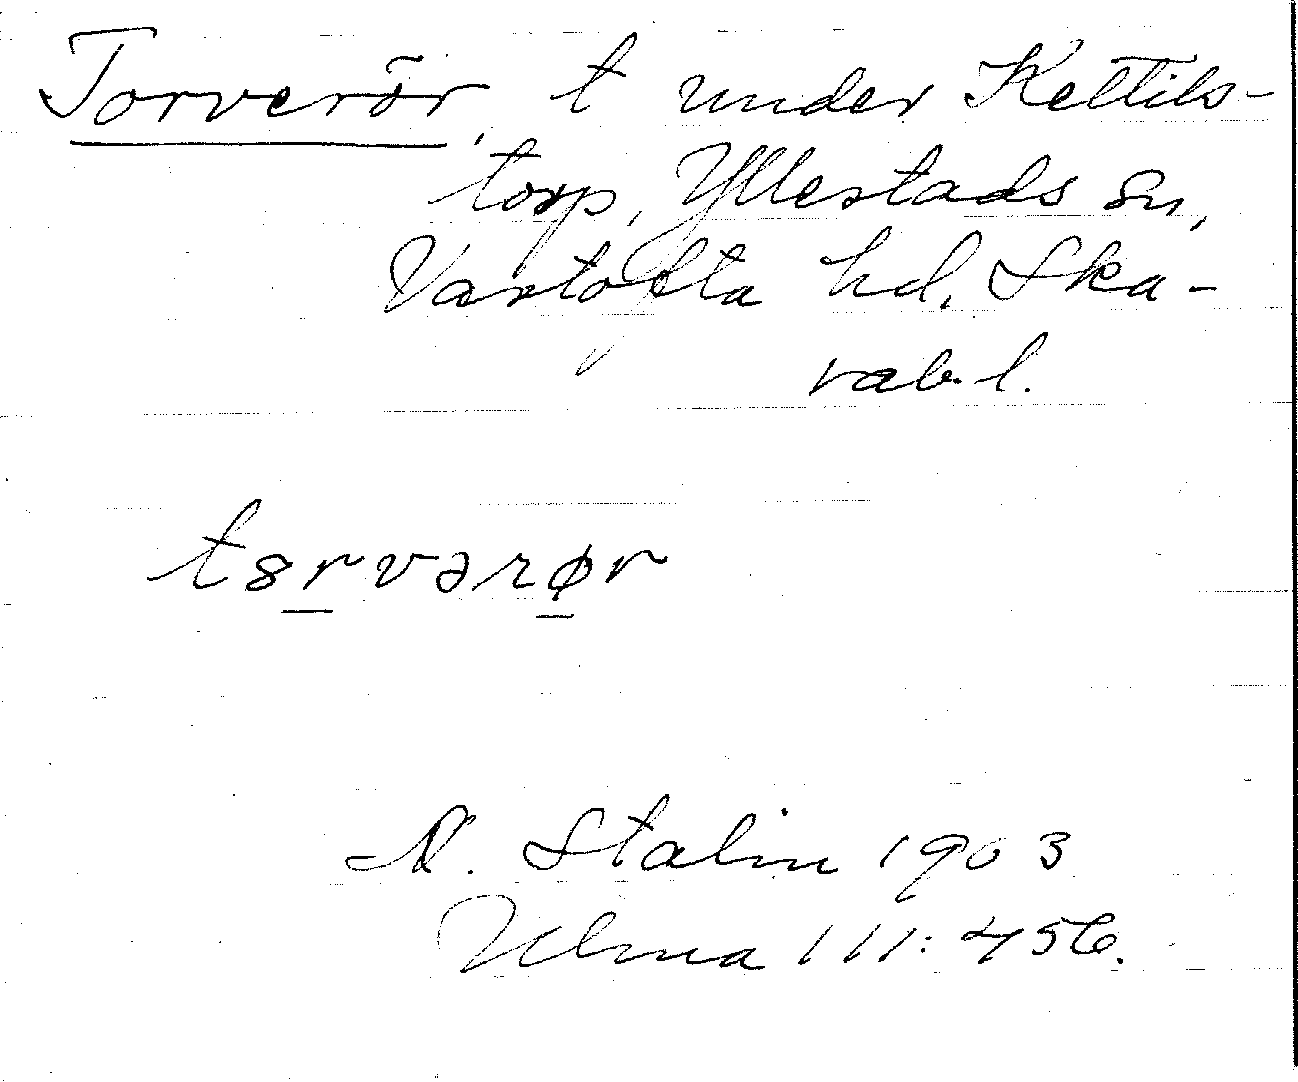 Torverör, t under Kettils-
torp, Yllestads sn,
Vartofta hd, Ska-
rab.l.
t8rvərør
N. Stalin 1903
Ulma 111:456.